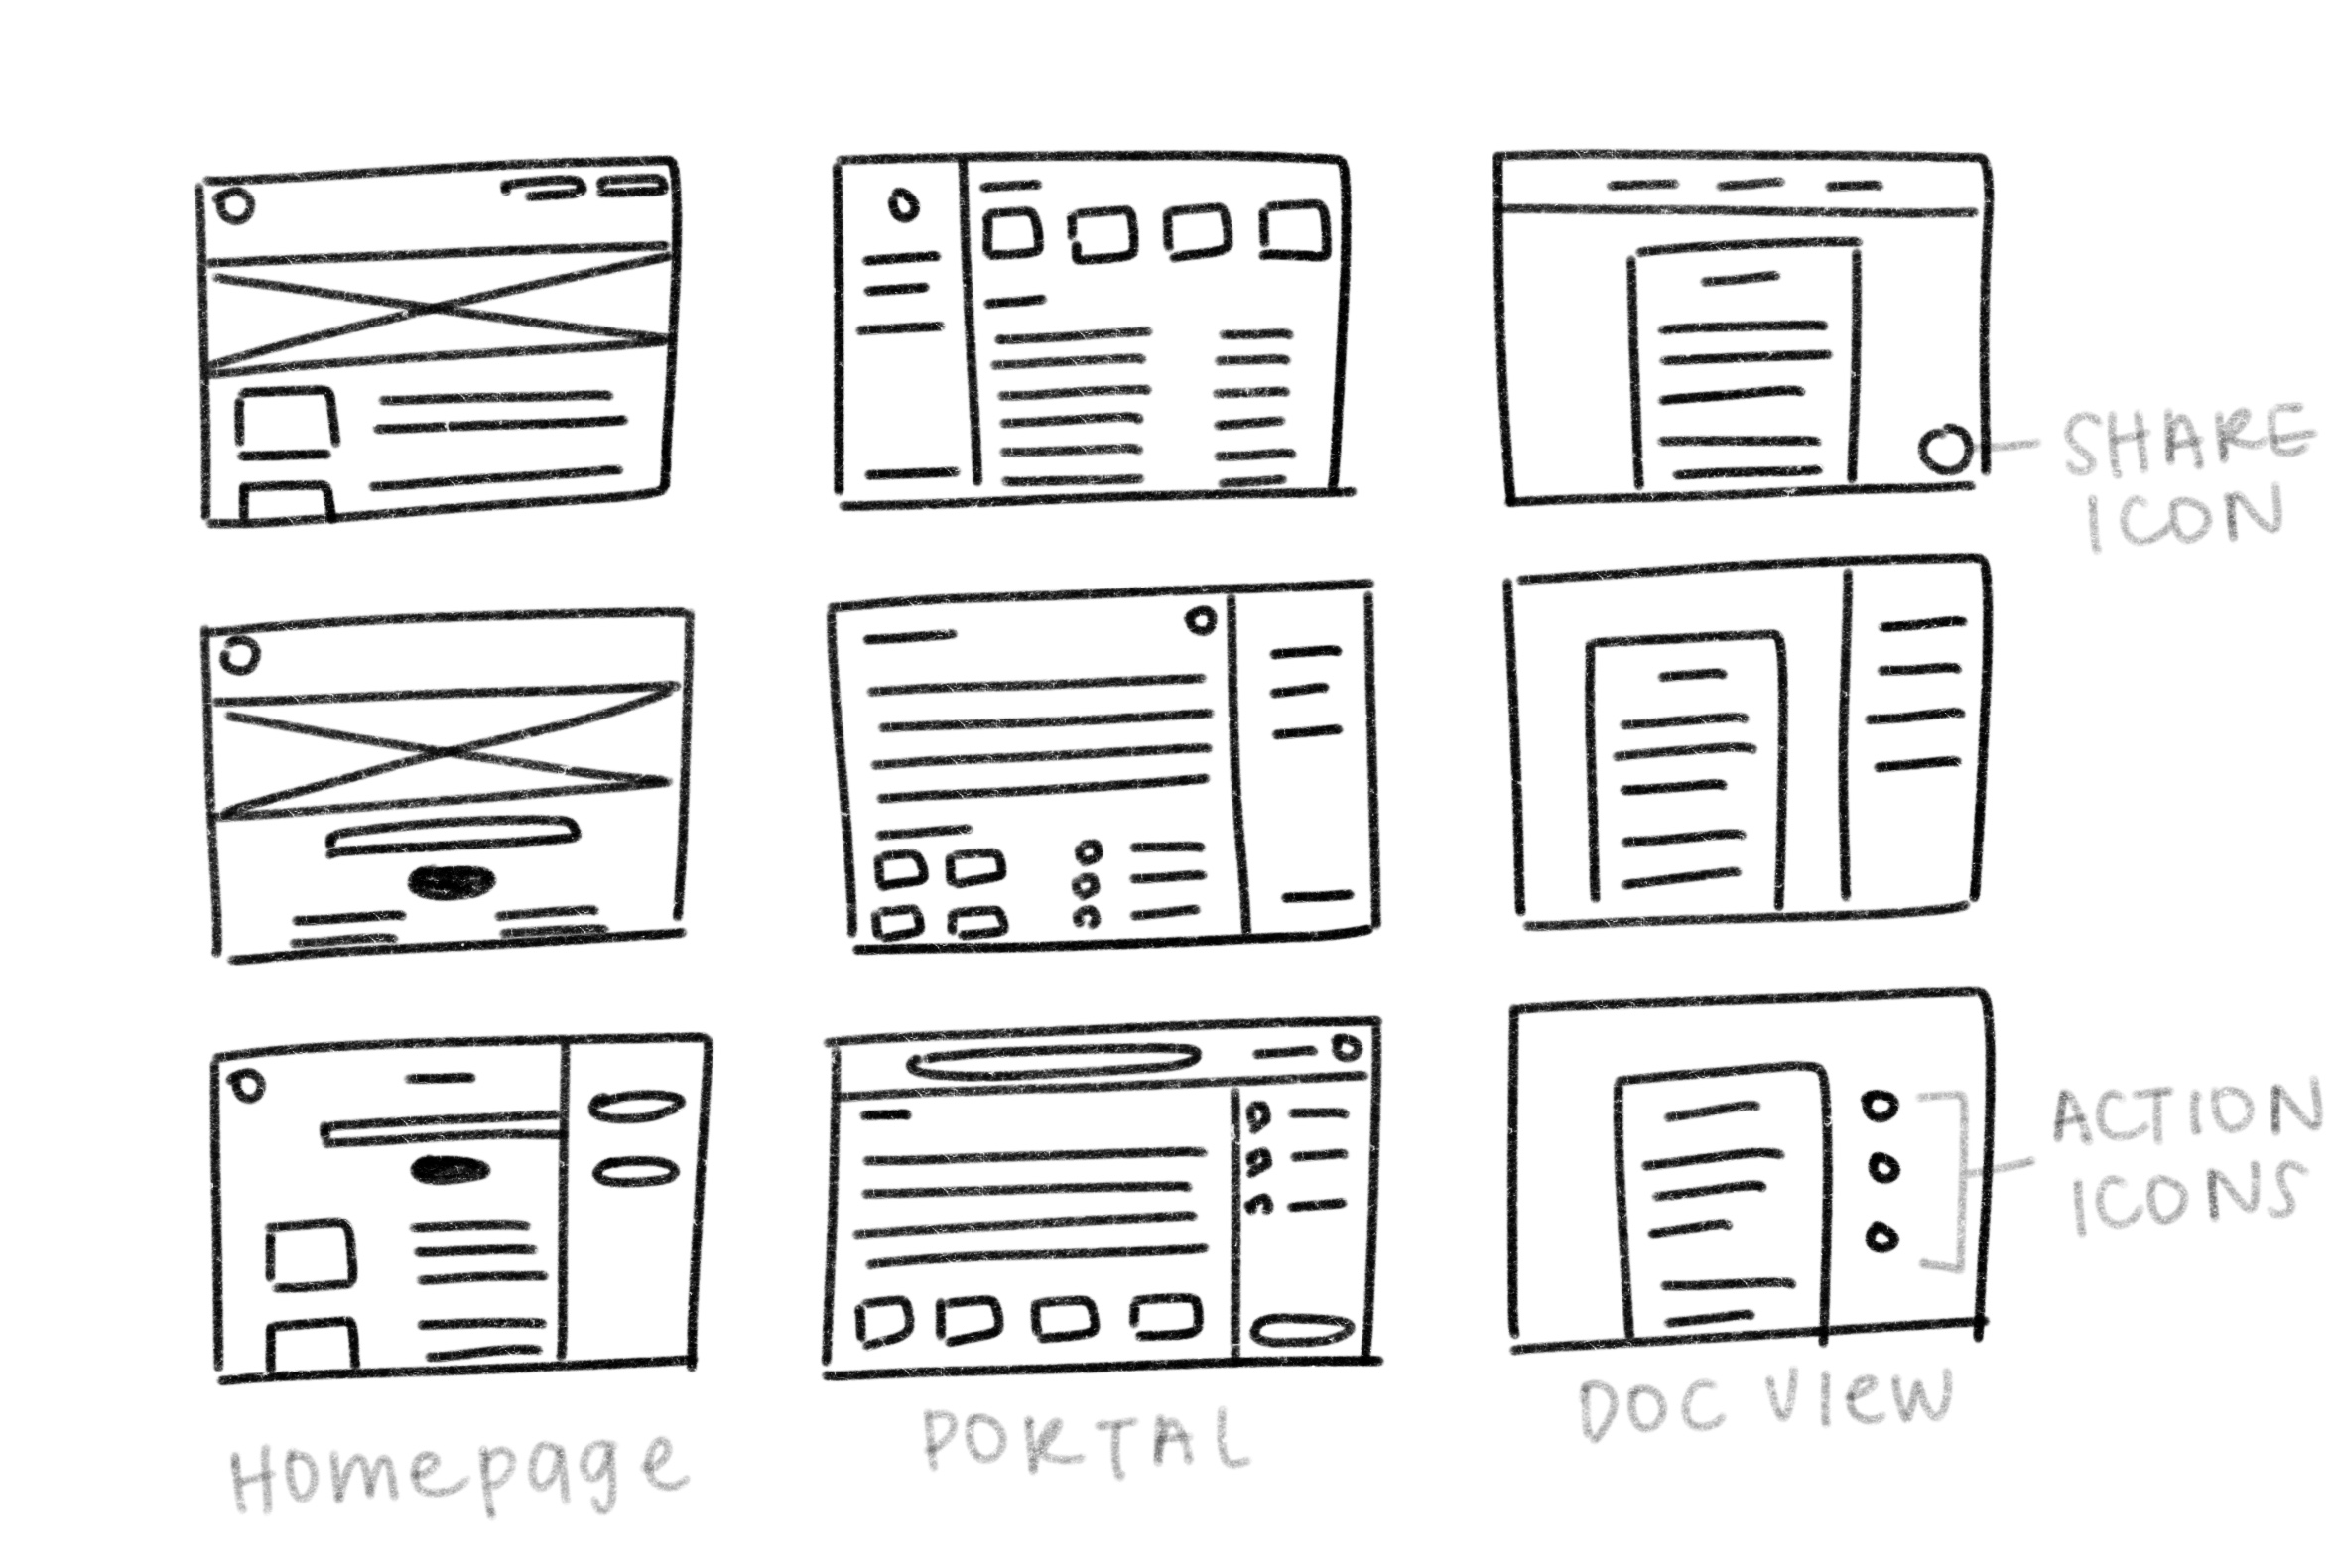 SHARE
ICON
ACTION
ICONS
Homepage
PORTAL
DOC VIEW